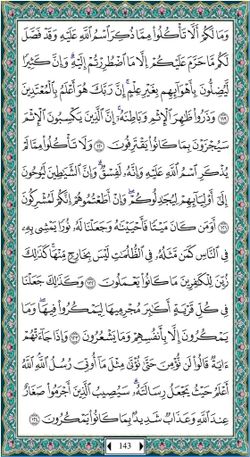 وَمَا لَكُمْ أَلَّا تَأْكُلُوا۟ مِمَّا ذُكِرَ ٱسْمُ ٱللَّهِ عَلَيْهِ وَقَدْ فَصَّلَ
لَكُم مَّا حَرَّمَ عَلَيْكُمْ إِلَّا مَا ٱضْطُرِرْتُمْ إِلَيْهِ ۗ وَإِنَّ كَثِيرًا
لَّيُضِلُّونَ بِأَهْوَآئِهِم بِغَيْرِ عِلْمٍ ۗ إِنَّ رَبَّكَ هُوَ أَعْلَمُ بِٱلْمُعْتَدِينَ
١١٩ وَذَرُوا۟ ظَٰهِرَ ٱلْإِثْمِ وَبَاطِنَهُۥٓ ۚ إِنَّ ٱلَّذِينَ يَكْسِبُونَ ٱلْإِثْمَ
سَيُجْزَوْنَ بِمَا كَانُوا۟ يَقْتَرِفُونَ ١٢٠ وَلَا تَأْكُلُوا۟ مِمَّا لَمْ
يُذْكَرِ ٱسْمُ ٱللَّهِ عَلَيْهِ وَإِنَّهُۥ لَفِسْقٌ ۗ وَإِنَّ ٱلشَّيَٰطِينَ لَيُوحُونَ
إِلَىٰٓ أَوْلِيَآئِهِمْ لِيُجَٰدِلُوكُمْ ۖ وَإِنْ أَطَعْتُمُوهُمْ إِنَّكُمْ لَمُشْرِكُونَ
١٢١ أَوَمَن كَانَ مَيْتًا فَأَحْيَيْنَٰهُ وَجَعَلْنَا لَهُۥ نُورًا يَمْشِى بِهِۦ
فِى ٱلنَّاسِ كَمَن مَّثَلُهُۥ فِى ٱلظُّلُمَٰتِ لَيْسَ بِخَارِجٍ مِّنْهَا ۚ كَذَٰلِكَ
زُيِّنَ لِلْكَٰفِرِينَ مَا كَانُوا۟ يَعْمَلُونَ ١٢٢ وَكَذَٰلِكَ جَعَلْنَا
فِى كُلِّ قَرْيَةٍ أَكَٰبِرَ مُجْرِمِيهَا لِيَمْكُرُوا۟ فِيهَا ۖ وَمَا
يَمْكُرُونَ إِلَّا بِأَنفُسِهِمْ وَمَا يَشْعُرُونَ ١٢٣ وَإِذَا جَآءَتْهُمْ
ءَايَةٌ قَالُوا۟ لَن نُّؤْمِنَ حَتَّىٰ نُؤْتَىٰ مِثْلَ مَآ أُوتِىَ رُسُلُ ٱللَّهِ ۘ ٱللَّهُ
أَعْلَمُ حَيْثُ يَجْعَلُ رِسَالَتَهُۥ ۗ سَيُصِيبُ ٱلَّذِينَ أَجْرَمُوا۟ صَغَارٌ
عِندَ ٱللَّهِ وَعَذَابٌ شَدِيدٌۢ بِمَا كَانُوا۟ يَمْكُرُونَ ١٢٤
143